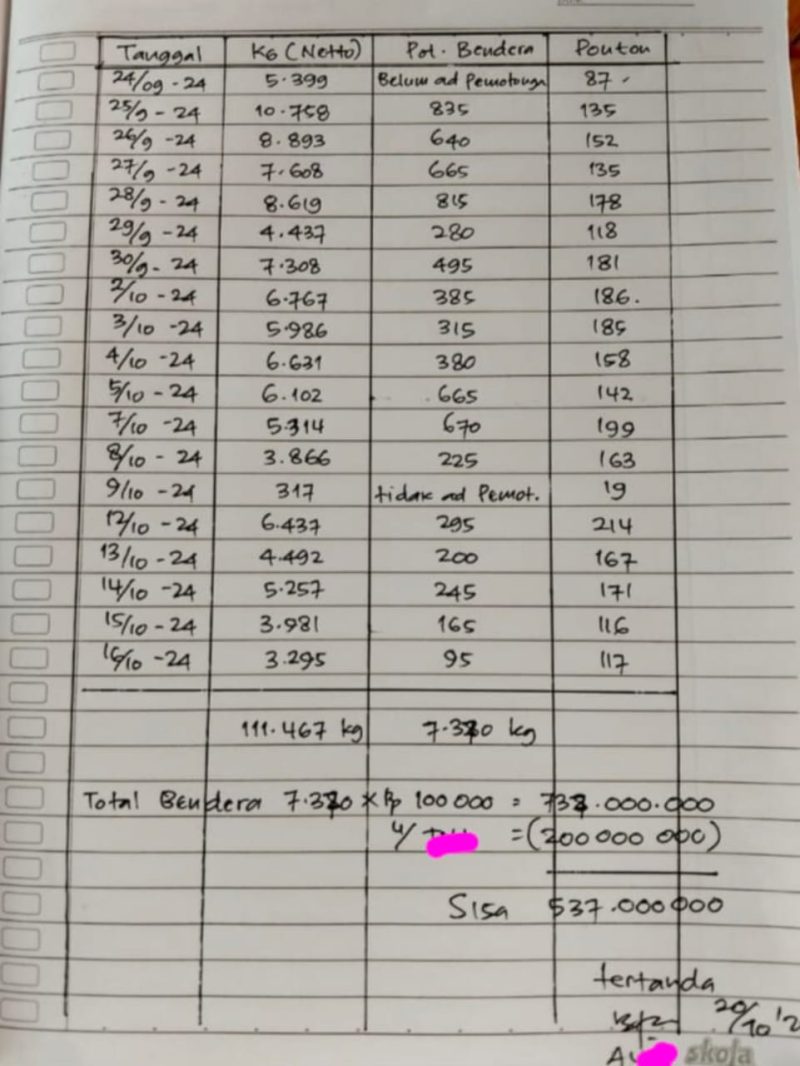 Tanggal KG (Netto) Pot. Bendera Ponton
24/09 - 24 5.399 Belum ad Pemotonga 87
25/9 - 24 10.758 835 135
26/9 - 24 8.893 640 152
27/9 - 24 7.608 665 135
28/9 - 24 8.619 815 178
29/9 - 24 4.437 280 118
30/9 - 24 7.308 495 181
2/10 - 24 6.767 385 186.
3/10 - 24 5.986 315 185
4/10 - 24 6.631 380 158
5/10 - 24 6.102 665 142
7/10 - 24 5.314 670 199
8/10 - 24 3.866 225 163
9/10 - 24 317 tidak ad Pemot. 19
12/10 - 24 6.437 295 214
13/10 - 24 4.492 200 167
14/10 - 24 5.257 245 171
15/10 - 24 3.981 165 116
16/10 - 24 3.295 95 117
111.467 kg 7.370 kg
Total Bendera 7.370 x Rp 100 000 = 737.000.000
u/ = (200 000 000)
Sisa 537.000 000
tertanda
20/10 '2
skola